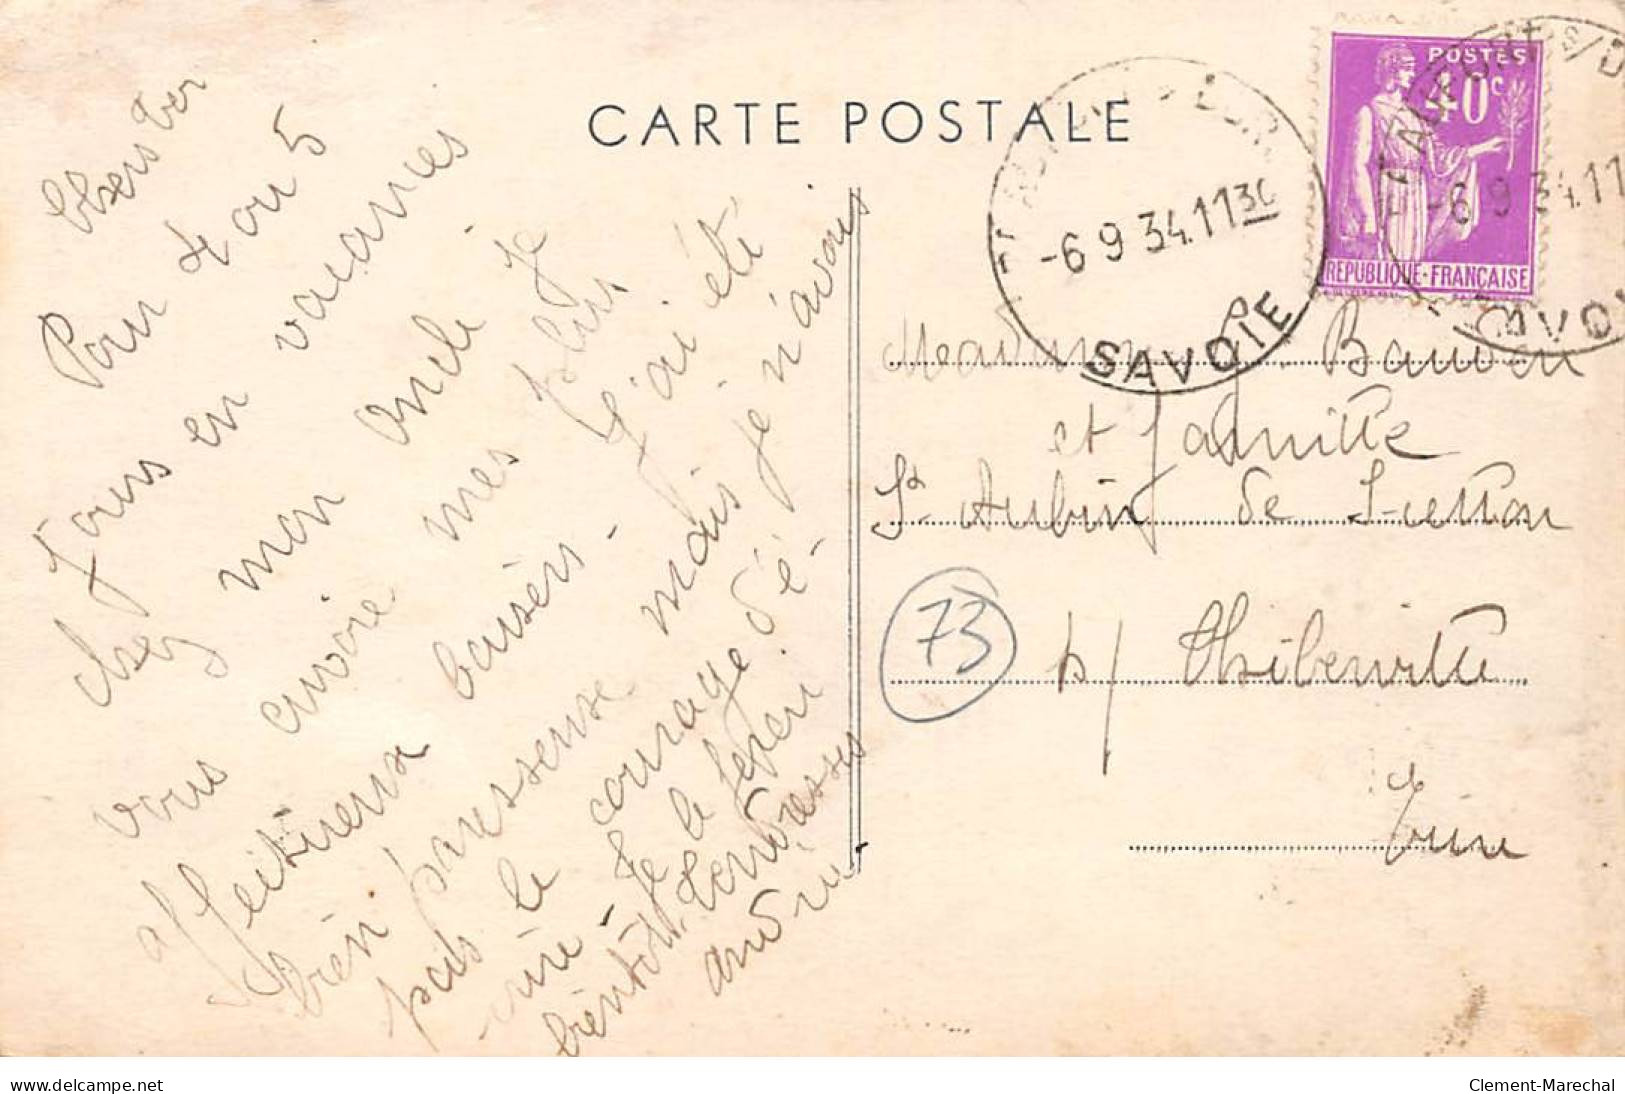 CARTE POSTALE
POSTES
40c
REPUBLIQUE FRANÇAISE
-6 9 34.11 30
SAVOIE
-6 9 34.11
Pour 4 ou 5
jours en vacances
chez mon oncle je
vous envoie mes plus
affectueux baisers - j'ai été
bien paresseuse mais je n'avais
pas le courage d'é-
crire - je le ferai
bientôt. tendresses
Andrée
Madame Bauven
et famille
St Aubin de Scellon
p/ Thiberville
Eure
73
www.delcampe.net
Clement-Marechal